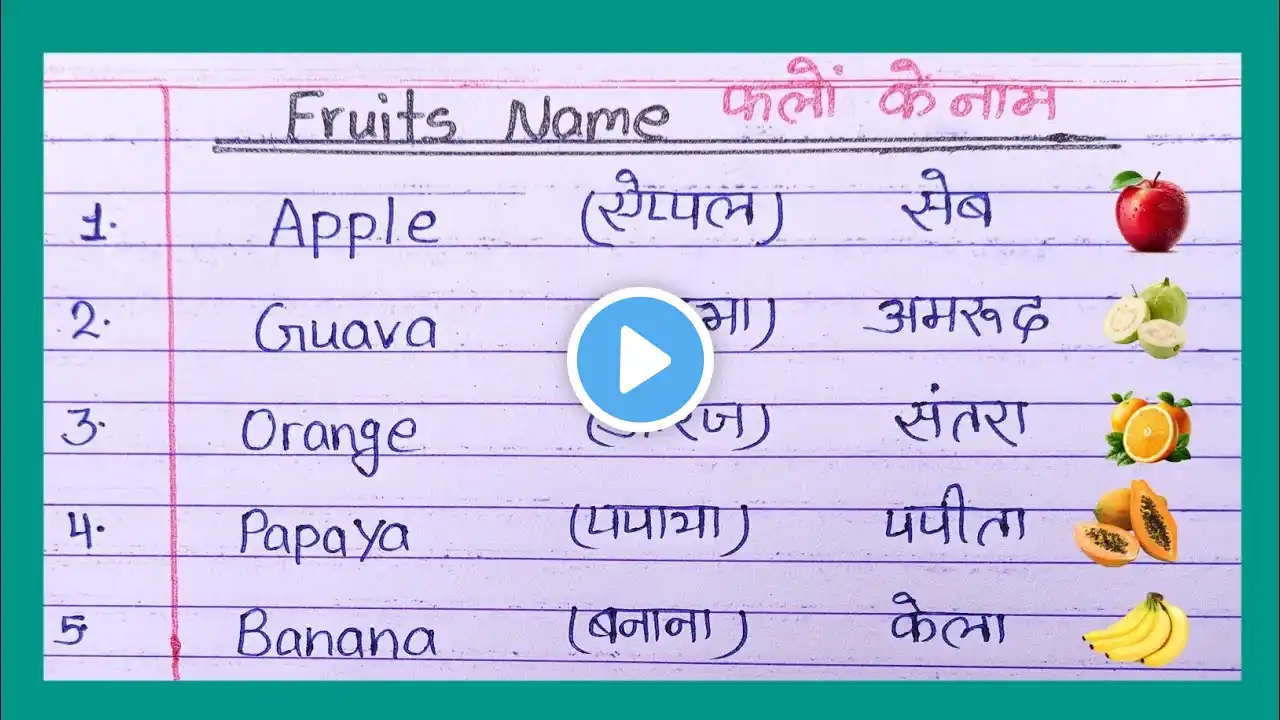 Fruits Name फलों के नाम
1. Apple (ऐप्पल) सेब
2. Guava अमरूद
3. Orange संतरा
4. Papaya (पपाया) पपीता
5. Banana (बनाना) केला